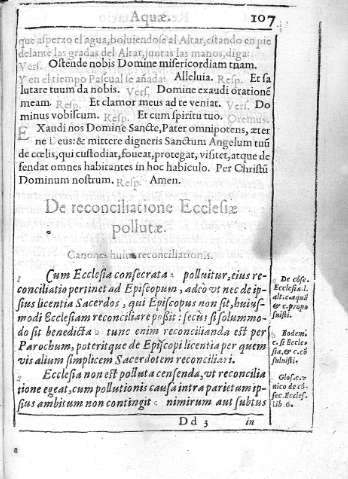 Aquæ. 107
que asperso el agua, boluiendose al Altar, estando en pie
delante las gradas del Altar, juntas las manos, diga:
Vers. Ostende nobis Domine misericordiam tuam.
Y en el tiempo Pascual se añada: Alleluia. Resp. Et sa
lutare tuum da nobis. Vers. Domine exaudi orationẽ
meam. Resp. Et clamor meus ad te veniat. Vers. Do
minus vobiscum. Resp. Et cum spiritu tuo. Oremus.
Exaudi nos Domine Sancte, Pater omnipotens, æter
ne Deus: & mittere digneris Sanctum Angelum tuũ
de cœlis, qui custodiat, foueat, protegat, visitet, atque de
fendat omnes habitantes in hoc habiculo. Per Christũ
Dominum nostrum. Resp. Amen.
De reconciliatione Ecclesiæ
pollutæ.
Canones huius reconciliationis.
1 Cum Ecclesia consecrata polluitur, eius re-
conciliatio pertinet ad Episcopum, adeò vt nec de ip-
sius licentia Sacerdos, qui Episcopus non sit, huius-
modi Ecclesiam reconciliare possit: secùs si solummo-
do sit benedicta: tunc enim reconcilianda est per
Parochum, poteritque de Episcopi licentia per quem
vis alium simplicem Sacerdotem reconciliari.
2 Ecclesia non est polluta censenda, vt reconcilia
tione egeat, cum pollutionis causa intra parietum ip-
sius ambitum non contingit: nimirum aut subtus
Dd 3 in
De cõse.
Ecclesia. l.
alt. c. aquã
& c. propo
suisti.
Eodem.
c. si Eccle
sia, & c. ꝓ
suisti.
Glos. c. v
nico de cõ
sec. Eccles.
lib. 6.